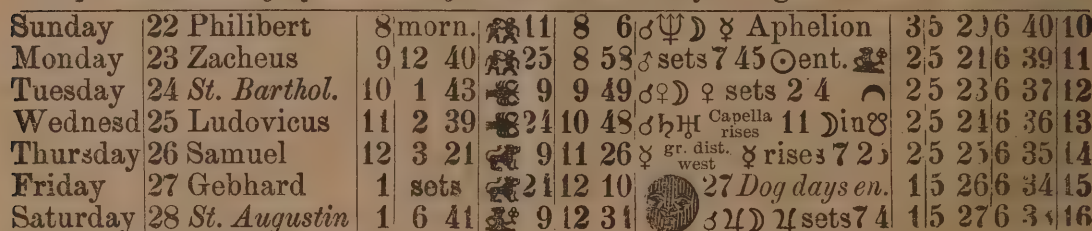 Sunday 22 Philibert 8 morn. 11 8 6 ☌♆☽ ☿ Aphelion 3 5 20 6 40 10
Monday 23 Zacheus 9 12 40 25 8 58 ♂ sets 7 45 ☉ent. 2 5 21 6 39 11
Tuesday 24 St. Barthol. 10 1 43 9 9 49 ☌♀☽ ♀ sets 2 4 2 5 23 6 37 12
Wednesd 25 Ludovicus 11 2 39 24 10 48 ☌♄♅ Capella rises 11 ☽in☋ 2 5 24 6 36 13
Thursday 26 Samuel 12 3 21 9 11 26 ☿ gr. dist. west ☿ rises 7 25 2 5 25 6 35 14
Friday 27 Gebhard 1 sets 21 12 10 27 Dog days en. 1 5 26 6 34 15
Saturday 28 St. Augustin 1 6 41 9 12 31 ☌♃☽ ♃ sets 7 4 1 5 27 6 16